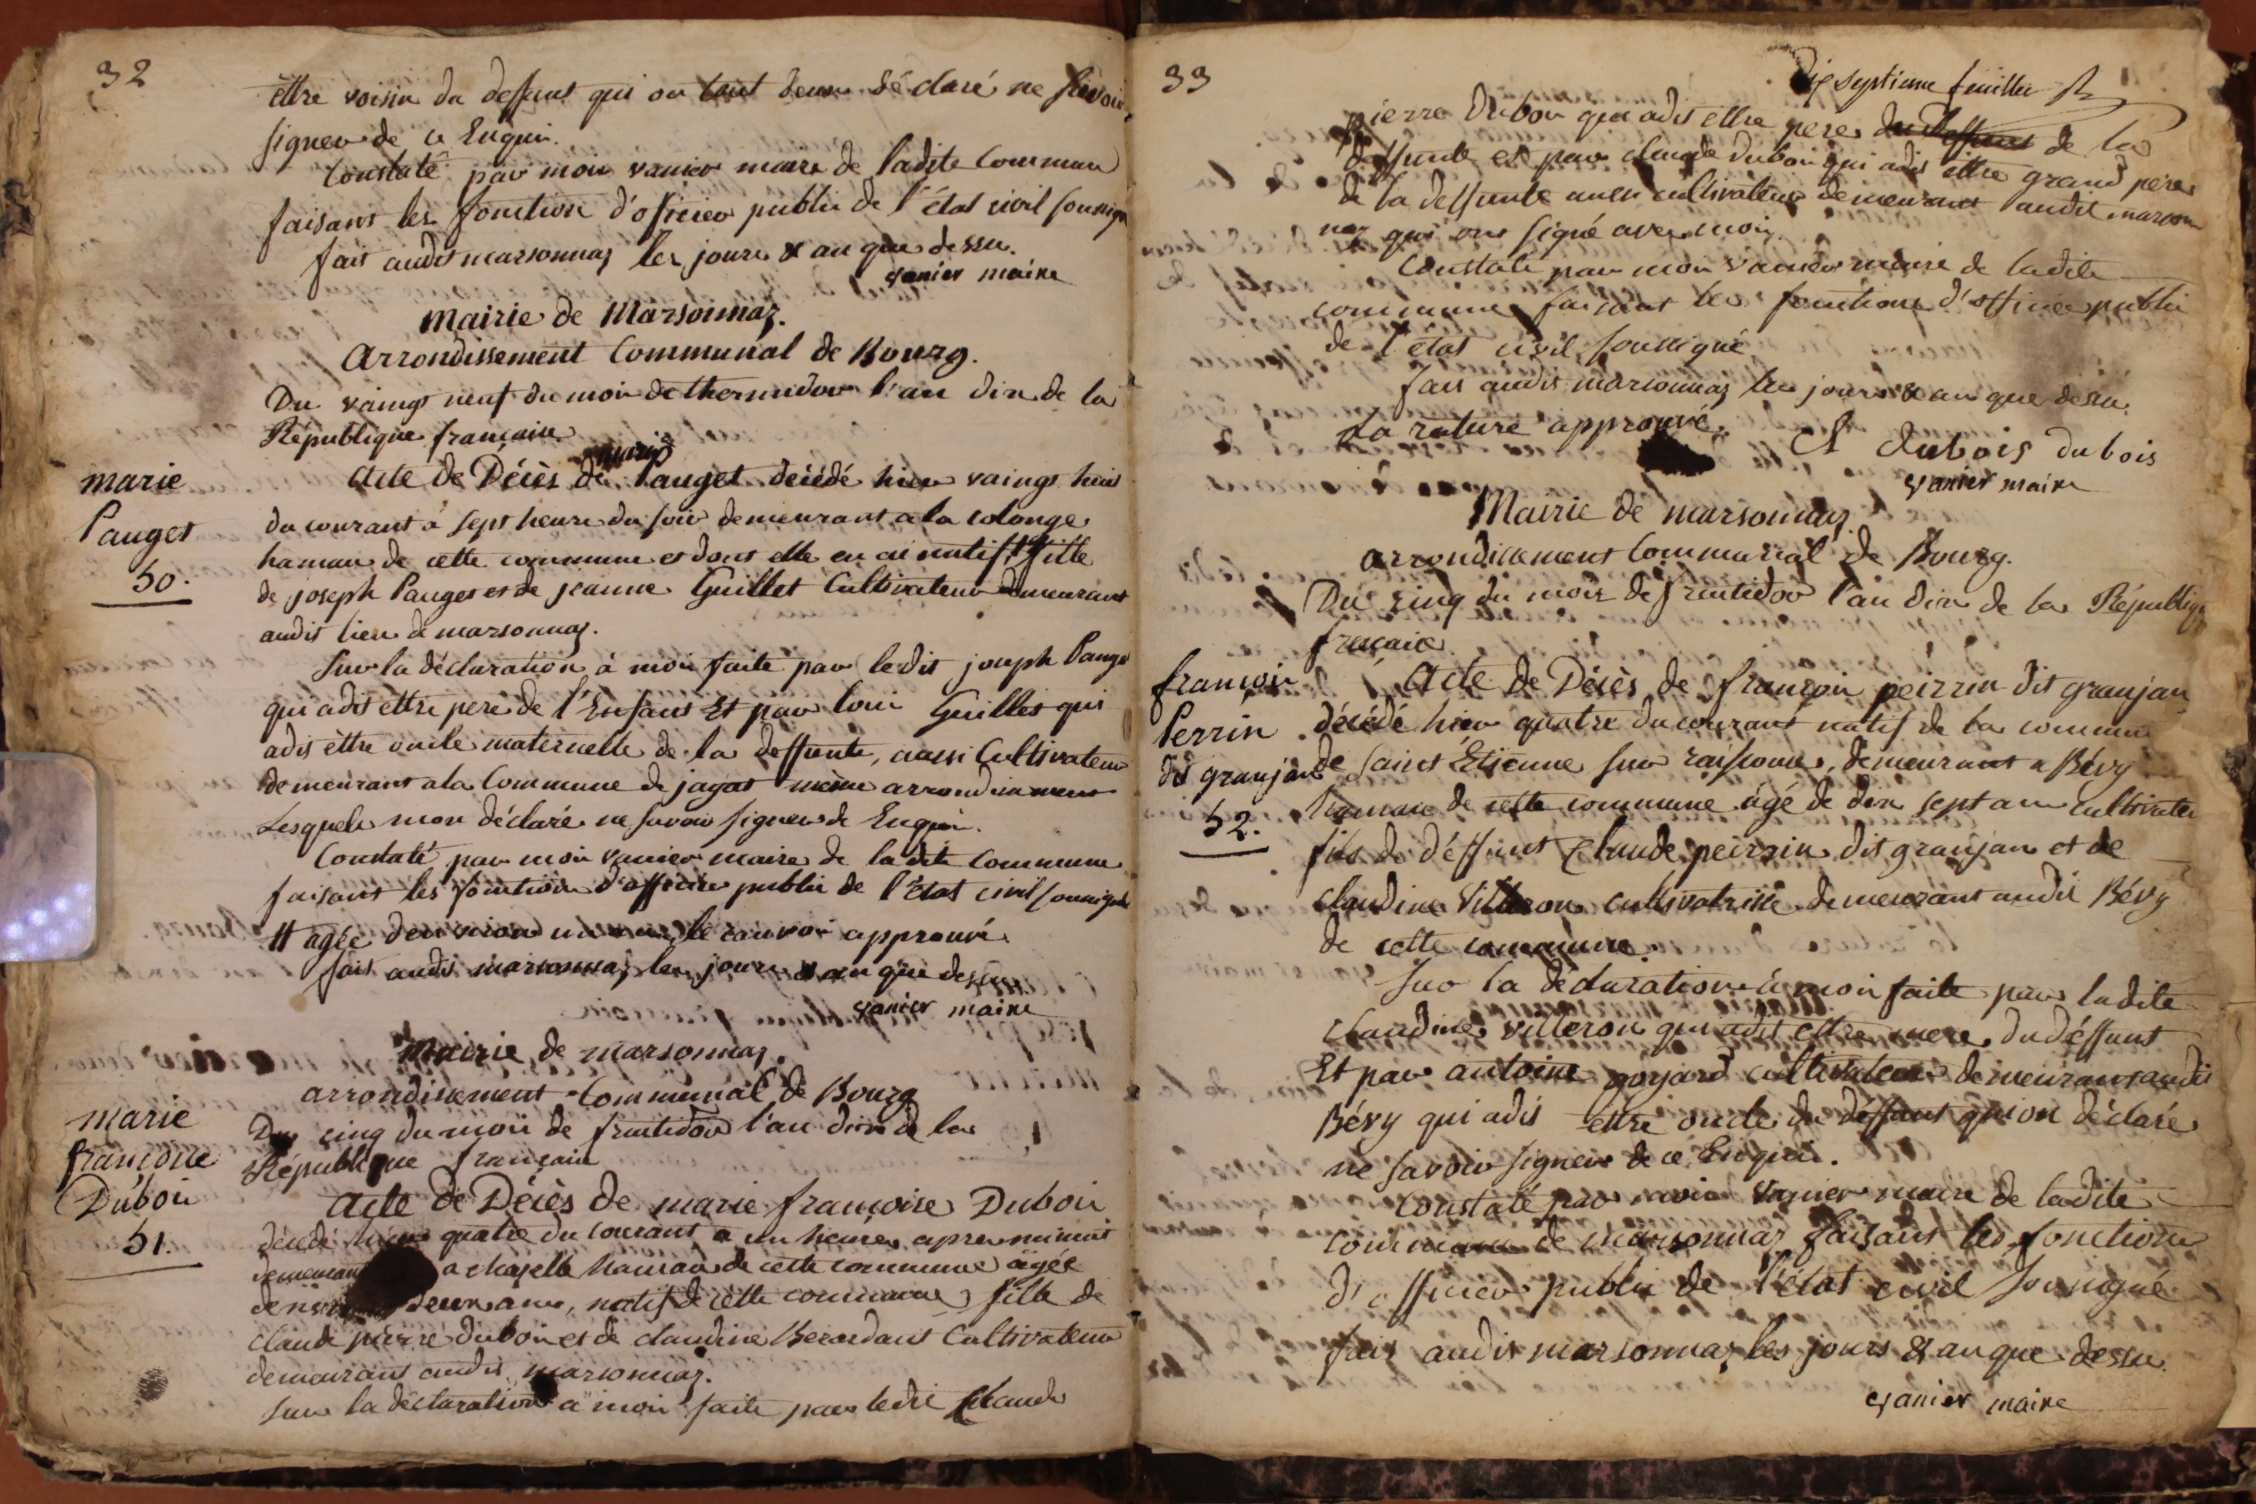 32
ettre voisin du deffunt qui on tout deux déclaré ne savoir
signer de ce Enquir.
Constaté par moi vanier maire de ladite Commune
faisant les fonction d'officier public de l'état civil soussigné
fait audit marsonnaz les jours & an que dessu.
vanier maire
Mairie de Marsonnaz.
Arrondissement Communal de Bourg.
Du vaingt neuf du moi de thermidor l'an dix de la
République française
marie
Pauget
50.
Acte de Décès de marie Pauget décédé hier vaingt huit
du courant à sept heure du soir demeurant a la colonge
hamau de cette commune et dont elle en ai natif # fille
de joseph Pauget et de jeanne Guillet Cultivateur demeurant
audit lieu de marsonnaz.
Sur la déclaration à moi faite par ledit joseph Pauget
qui adit ettre pere de l'Enfant Et par loui Guillet qui
adit ettre oncle maternelle de la deffunte, aussi Cultivateur
demeurant a la Commune de jayat même arrondissement
Lesquels mon déclaré ne savoir signer de Enquir.
Constaté par moi vanier maire de la dite Commune
faisant les fonction d'officier public de l'état civil soussigné
# agée denviron un an, le renvoi approuvé
fait audit marsonnaz les jours & an que dessu
vanier maire
Mairie de marsonnaz.
arrondissement Communal de Bourg
marie
francoise
Duboi
51.
Du cinq du moi de fructidor l'an dix de la
République français
Acte de Décès de marie françoise Duboi
décédé hier quatre du courant a un heure apres minuit
demeurant a chapelle hamau de cette commune agée
denviron deux ans, natif de cette commune, fille de
claude pierre duboi et de claudine Berardant Cultivateur
demeurant audit marsonnaz.
Sur la déclaration a moi faite par ledit Claude
33
Dix septieme feuillet
pierre Duboi qui adit ettre pere du deffunt de la
deffunte et par claude duboi qui adit ettre grand pere
de la deffunte aussi cultivateur demeurant audit marson
naz qui ont signé avec moi.
Constaté par moi vanier maire de ladite
commune faisant les fonctions d'officier public
de l'état civil soussigné
fait audit marsonnaz les jours & an que dessu.
La rature approuvé.
Cl dubois dubois
vanier maire
Mairie de marsonnaz
arrondissement Communal de Bourg.
Du cinq du mois de fructidor l'an dix de la République
française.
françoi
Perrin
dit granjan
52.
Acte de Décès de françoi peirrin dit granjan
décédé hier quatre du courant natif de la commune
de saint Étienne sur raissouse, demeurant a Bévy
hamau de cette commune âgé de dix sept an cultivateur
fils de déffunt Claude peirrin dit granjan et de
claudine Villeron cultivatrisse demeurant audit Bévy
de cette commune.
Sur la déclaration à moi faite par ladite
claudine villeron qui adit ettre mere du déffunt
Et par antoine goyard cultivateur demeurant audit
Bévy qui adit ettre oncle du déffunt qui on déclaré
ne savoir signer de ce Enquir.
Constaté par moi vanier maire de ladite
commune de marsonnaz faisant les fonction
d'officier public de l'état civil soussigné
fait audit marsonnaz les jours & an que dessu.
vanier maire